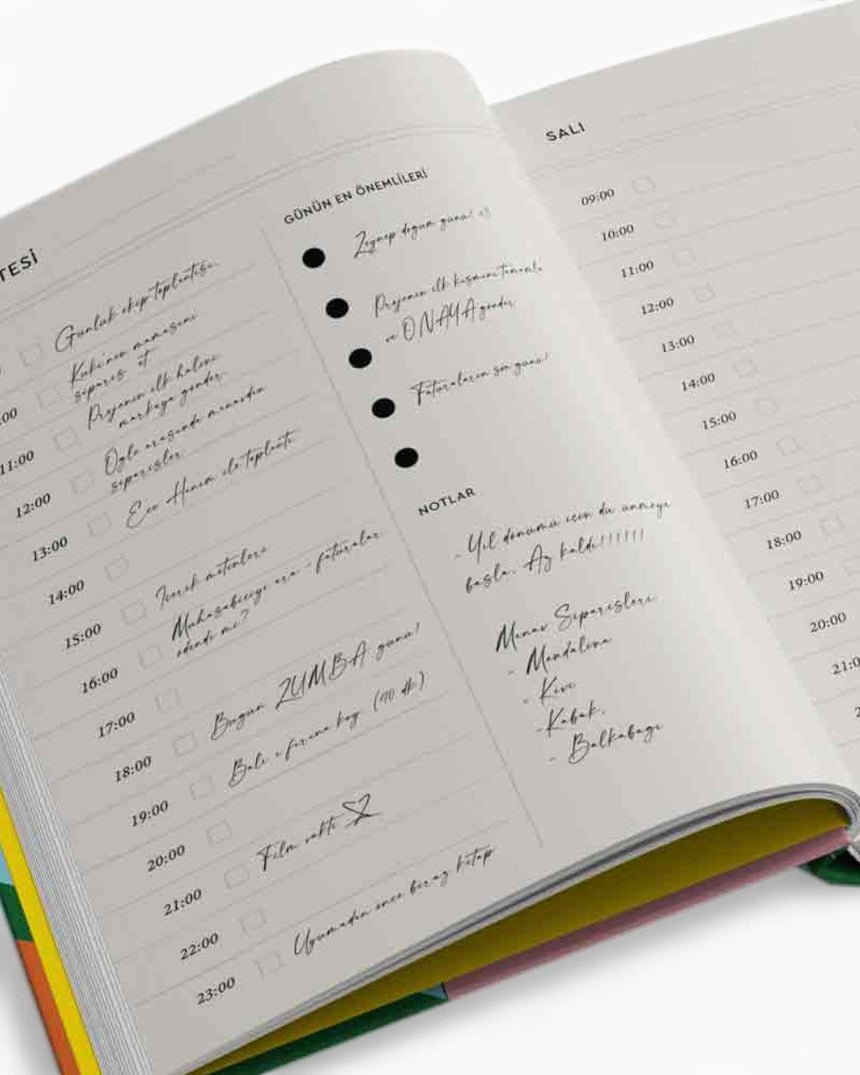 TESİ
Günlük ekip toplantısı
:00
Kuki'nin maması
sipariş et
11:00
Projenin ilk halini
markaya gönder.
12:00
Öğle arasında manavdan
siparişler
13:00
Ece Hanım ile toplantı
14:00
15:00
İçerik metinleri
16:00
Muhasebeciyi ara - faturalar
ödendi mi?
17:00
18:00
Bugün ZUMBA günü!
19:00
Balı fırına koy. (40 dk)
20:00
21:00
Film vakti
22:00
23:00
Uyumadan önce biraz kitap
GÜNÜN EN ÖNEMLİLERİ
Zeynep doğum günü!
Projenin ilk kısmını tamamla
ve ONAYA gönder
Faturaların son günü!
NOTLAR
- Yıl dönümü için düşünmeye
başla. Ay kaldı!!!!!!
Manav Siparişleri
- Mandalina
- Kivi
- Kabak.
- Balkabağı
SALI
09:00
10:00
11:00
12:00
13:00
14:00
15:00
16:00
17:00
18:00
19:00
20:00
21:0
2